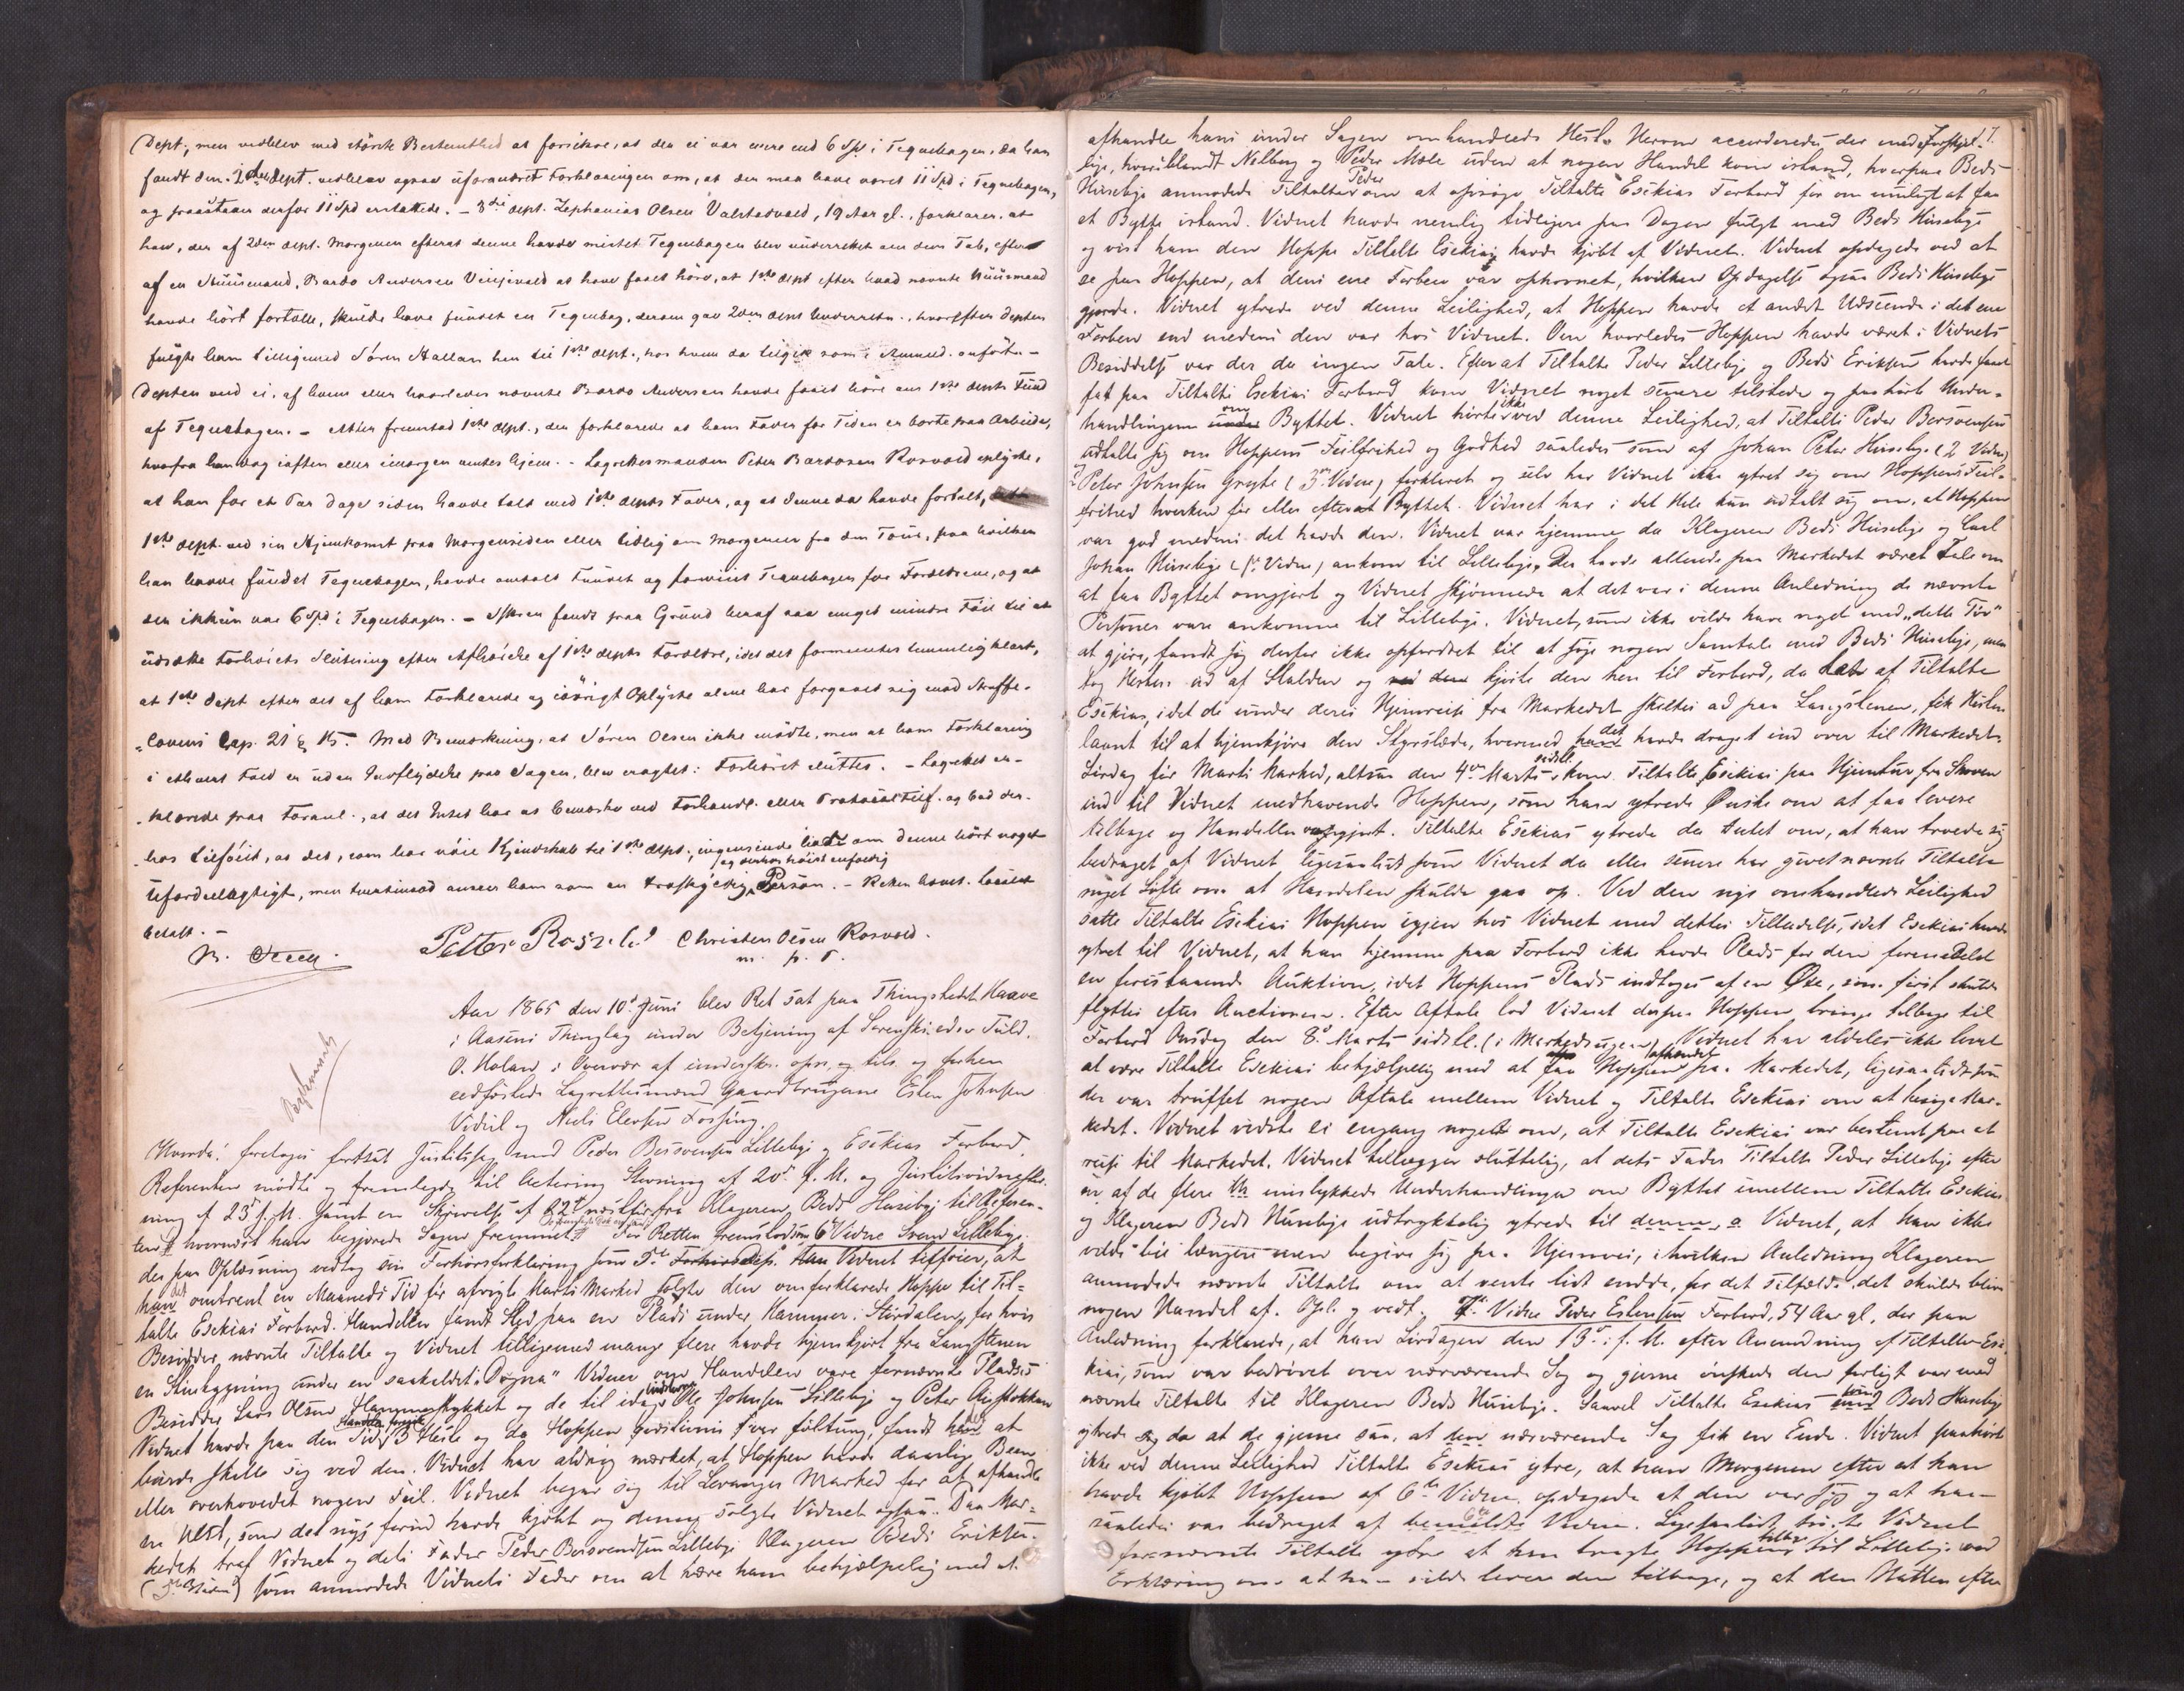 Dept., men vedblev med störste Bestemthed at forsikre, at der ei var mere end 6 Spd i Tegnebogen, da han
fandt den. 2den Dept. vedblev ogsaa uforandret Forklaringen om, at der maa have været 11 Spd i Tegnebogen,
og paastaaer derfor 11 Spd erstattede. – 3die Dept. Zephanias Olsen Valstadvald, 19 Aar gl., forklarer, at
han, der af 2den Dept. Morgenen efterat denne havde mistet Tegnebogen blev underrettet om dens Tab, efter
af en Huusmand, Bardo Andersen at have faaet höre, at 1ste Dept efter hvad nævnte Huusmand
havde hört fortælle, skulde have fundet en Tegnebog, derom gav 2den Dept Underretn., hvorefter Depten
fulgte ham tilligemed Sören Hallan hen til 1ste Dept., hos hvem da tilgik som i Anmeld. anfört. –
Depten ved ei, af hvem eller hvorledes nævnte Bardo Andersen havde faaet höre om 1ste Depts Fund
af Tegnebogen. – Atter fremstod 1ste Dept., der forklarede at hans Fader for Tiden er borte paa Arbeide,
hvorfra han dog iaften eller imorgen ventes hjem. – Lagrettesmanden Peter Bardosen Rosvold oplyste,
at han for et Par Dage siden havde talt med 1ste Depts Fader, og at denne da havde fortalt, at
1ste Dept. ved sin Hjemkomst paa Morgensiden eller tidlig om Morgenen fra den Tour, paa hvilken
han havde fundet Tegnebogen, havde omtalt Fundet og foreviist Tegnebogen for Forældrene, og at
der ikkun var 6 Spd i Tegnebogen. – fandt paa Grund heraf saa meget mindre Föie til at
udsætte Forhörets Slutning efter Afhörelse af 1ste Depts Forældre, idet det formeentes temmelig klart,
at 1ste Dept efter det af ham Forklarede og iövrigt Oplyste alene har forgaaet sig mod Straffe-
lovens Cap. 21 § 15. Med Bemærkning, at Sören Olsen ikke mödte, men at hans Forklaring
i ethvert Fald er uden Indflydelse paa Sagen, blev eragtet: Forhöret sluttes. – Lagrettet er-
klærede paa Foranl., at det Intet har at bemærke ved Forhandl. eller Protocoltilf. og bad der-
hos tilföiet, at det, som har nöie Kjendskab til 1ste Dept., ingensinde havde om denne hört noget
og derhos höist enfoldig
ufordeelagtigt, men tvertimod anseer ham som en troskyldig Person. – Retten hævet. Localet
betalt. –
Petter Roszvold Christen Olsen Rosvold.
m. p. P.
Aar 1865 den 10de Juni blev Ret sat paa Thingstedet Haave
i Aasens Thinglag under Betjening af Sorenskriver Fuld.
O. Moland, i Overvær af underskr. opn. og tils. og forhen
eedfæstede Lagrettesmænd Gaardbrugerne Esten Johnsen
Vidul og Niels Elevsen Fossing.
Hvorda: foretoges fortsat Justitssag mod Peder Bersvensen Lillebye og Esekias Forbord.
Referenten mödte og fremlagde til Actering Stevning af 20de f. M. og Justitsvidnestev-
ning af 23de f. M. samt en Skrivelse af 22de næstfør fra Klageren Beds Huseby til Referen-
ten, hvornæst han begjærede Sagen fremmet. For Retten fremstod som 6te Vidne Svend Lillebye
der paa Oplæsning vedtog sin Forhørsforklaring som Vidnet tilföier, at
det omtrent en Maaneds Tid før afvigte Marts Marked solgte den omforklarede Hoppe til Til-
talte Esekias Forbord. Handelen fandt Sted paa en Plads under Hammer i Stördalen, for hvis
Besidder nævnte Tiltalte og Vidnet tilligemed mange flere havde hjemkjørt fra Langstenen
en Stuebygning under en saakaldet „Dögna“ Vidner om Handelen vare fornævnte Pladses
Besidder Lars Olsen Hammerstykket og de til idag indstevnte Ole Johnsen Lillebye og Peter Augstokkan
Vidnet havde paa den Tid Handelen foregik 3 Heste og da Hoppen var föltung, fandt det at
burde skille sig ved den. Vidnet har aldrig mærket, at Hoppen havde daarlige Been
eller overhovedet nogen Feil. Vidnet begav sig til Levanger Marked for at afhandle
en Hest, som det nys forud havde kjöbt og denne solgte Vidnet ogsaa. Paa Mar-
kedet traf Vidnet og dets Fader Peder Bersvendsen Lillebye Klageren Beds Eriksen
som anmodede Vidnets Fader om at være ham behjælpelig med at
afhandle hans under Sagen omhandlede Hest. Herom accorderedes der med Forskjel-
lige, hvoriblandt Nilberg og Peder Mæle uden at nogen Handel kom istand, hvorpaa Beds
Huseby anmodede Tiltalte Peder om at opsöge Tiltalte Esekias Forbord for om muligt at faa
et Bytte istand. Vidnet havde nemlig tidligere paa Dagen fulgt med Beds Husebye
og vist ham den Hoppe Tiltalte Esekias havde kjöbt af Vidnet. Vidnet opdagede ved at
se paa Hoppen, at dens ene Forben var ophovnet, hvilken Opdagelse ogsaa Beds Husebye
gjorde. Vidnet ytrede ved denne Leilighed, at Hoppen havde et andet Udseende i det ene
Forben end medens den var hos Vidnet. Om hvorledes Hoppen havde været i Vidnets
Besiddelse var der da ingen Tale. Efter at Tiltalte Peder Lillebye og Beds Eriksen havde faaet
fat paa Tiltalte Esekias Forbord kom Vidnet noget senere tilstede og paahörte Under-
handlingerne om Byttet. Vidnet hörte ikke ved denne Leilighed, at Tiltalte Peder Bersvensen
udtalte sig om Hoppens Feilfrihed og Godhed saaledes som af Johan Peter Husebye (2 Vidne)
og Peter Johnsen Grøtte (3die Vidne) forklaret og selv har Vidnet ikke ytret sig om Hoppens Feil-
frihed hverken før eller efterat Byttet. Vidnet har i det Hele kun udtalt sig om, at Hoppen
var god medens det havde den. Vidnet var hjemme da Klageren Beds Husebye og Carl
Johan Husebye (1ste Vidne) ankom til Lillebye. Der havde allerede paa Markedet været Tale om
at faa Byttet omgjort og Vidnet skjönnede at det var i denne Anledning de nævnte
Personer vare ankomne til Lillebye. Vidnet, som ikke vilde have noget med „dette Töv“
at gjøre, fandt sig derfor ikke opfordret til at söge nogen Samtale med Beds Husebye, men
tog Hesten ud af Stalden og kjørte den hen til Forbord, da det af Tiltalte
Esekias, idet de under deres Hjemreise fra Markedet skiltes ad paa Langstenen, fik Hesten
laant til at hjemkjøre den Styrslæde, hvormed det havde draget ind over til Markedet.
Lördag før Marts Marked, altsaa den 4de Marts sidstl. kom Tiltalte Esekias paa Hjemtur fra Skoven
ind til Vidnet medhavende Hoppen, som han ytrede Ønske om at faa levere
tilbage og Handelen omgjort. Tiltalte Esekias ytrede da Intet om, at han troede sig
bedraget af Vidnet ligesaalidt som Vidnet da eller senere har givet nævnte Tiltalte
noget Löfte om at Handelen skulde gaa op. Ved den nys omhandlede Leilighed
satte Tiltalte Esekias Hoppen igjen hos Vidnet med dettes Tilladelse, idet Esekias havde
ytret til Vidnet, at han hjemme paa Forbord ikke havde Plads for den formedelst
en forestaaende Auktion, idet Hoppens Plads indtoges af en Øxe, som først skulde
flyttes efter Auctionen. Efter Aftale lod Vidnet derpaa Hoppen bringe tilbage til
Forbord Onsdag den 8de Marts sidstl. (i Markedsugen). Vidnet har aldeles ikke lovet
at være Tiltalte Esekias behjælpelig med at faa Hoppen afhændet paa Markedet, ligesaalidt som
der var truffet nogen Aftale mellem Vidnet og Tiltalte Esekias om at besöge Mar-
kedet. Vidnet vidste ei engang noget om, at Tiltalte Esekias var bestemt paa at
reise til Markedet. Vidnet tillægger sluttelig, at dets Fader Tiltalte Peder Lillebye efter
en af de flere mislykkede Underhandlinger om Byttet imellem Tiltalte Esekias
og Klageren Beds Husebye udtrykkelig ytrede til denne, o: Vidnet, at han ikke
vilde bie længere men begive sig paa Hjemvei, i hvilken Anledning Klageren
anmodede nævnte Tiltalte om at vente lidt endda, for det Tilfælde det skulde blive
nogen Handel af. Opl. og vedt. 7de Vidne Peder Estensen Forbord, 54 Aar gl., der paa
Anledning forklarede, at han Lördagen den 13de i f. M. efter Anmodning af Tiltalte Ese-
kias, som var bedrövet over nærværende Sag og gjerne önskede den forligt var med
nævnte Tiltalte til Klageren Beds Husebye. Saavel Tiltalte Esekias som Beds Husebye
ytrede sig da at de gjerne saa, at den nærværende Sag fik en Ende. Vidnet paahörte
ikke ved denne Leilighed Tiltalte Esekias ytre, at han Morgenen efter at han
havde kjöbt Hoppen af 6te Vidne, opdagede at den var syg og at han
saaledes var bedraget af bemeldte Vidne. Ligesaalidt hörte Vidnet
fornævnte Tiltalte ytre at han bragte Hoppen tilbage til Lillebye med
Erklæring om at han vilde levere den tilbage, og at den Natten efter